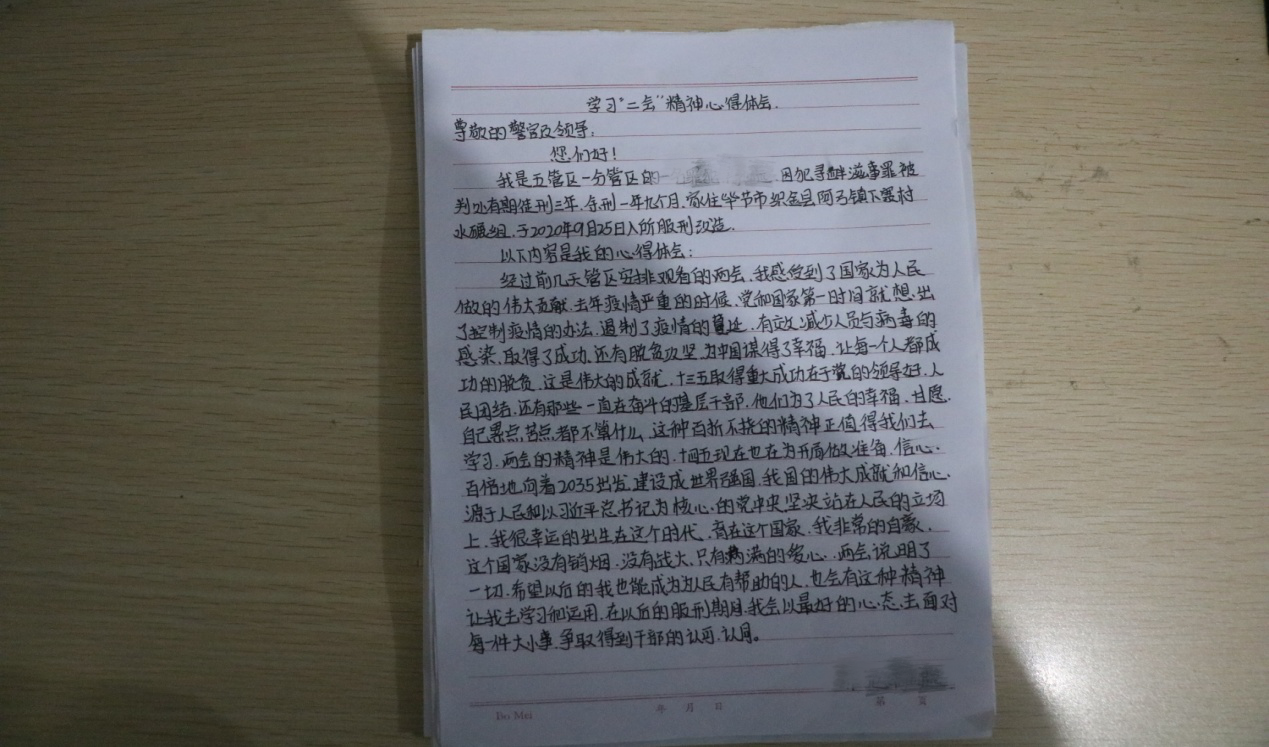 学习“二会”精神心得体会.
尊敬的警官及领导:
您们好!
我是五管区一分管区的 因犯寻衅滋事罪被
判处有期徒刑三年,余刑一年九个月,家住毕节市织金县阿弓镇下寨村
水碾组,于2020年9月25日入所服刑改造.
以下内容是我的心得体会:
经过前几天管区安排观看的两会,我感受到了国家为人民
做的伟大贡献.去年疫情严重的时候,党和国家第一时间就想出
了控制疫情的办法,遏制了疫情的蔓延,有效减少人员与病毒的
感染,取得了成功,还有脱贫攻坚,为中国谋得了幸福,让每一个人都成
功的脱贫,这是伟大的成就,十三五取得重大成功在于党的领导好,人
民团结,还有那些一直在奋斗的基层干部,他们为了人民的幸福,甘愿
自己累点苦点都不算什么,这种百折不挠的精神正值得我们去
学习,两会的精神是伟大的,十四五现在也在为开局做准备,信心
百倍地向着2035出发,建设成世界强国,我国的伟大成就和信心
源于人民和以习近平总书记为核心的党中央坚决站在人民的立场
上,我很幸运的出生在这个时代,育在这个国家,我非常的自豪,
这个国家没有销烟,没有战火,只有满满的爱心,两会说明了
一切,希望以后的我也能成为为人民有帮助的人,也会有这种精神
让我去学习和运用,在以后的服刑期间,我会以最好的心态去面对
每一件大小事,争取得到干部的认可,认同。
Bo Mei 年 月 日 第 页